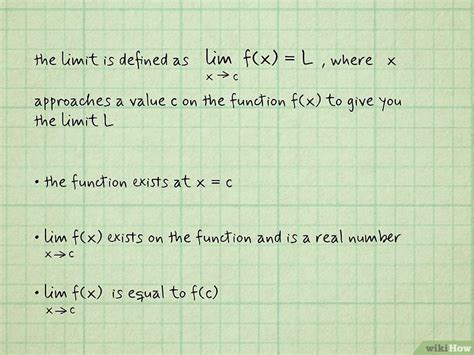 the limit is defined as lim f(x) = L , where x
x → c
approaches a value c on the function f(x) to give you
the limit L
• the function exists at x = c
• lim f(x) exists on the function and is a real number
x→c
• lim f(x) is equal to f(c)
x→c
wikiHow